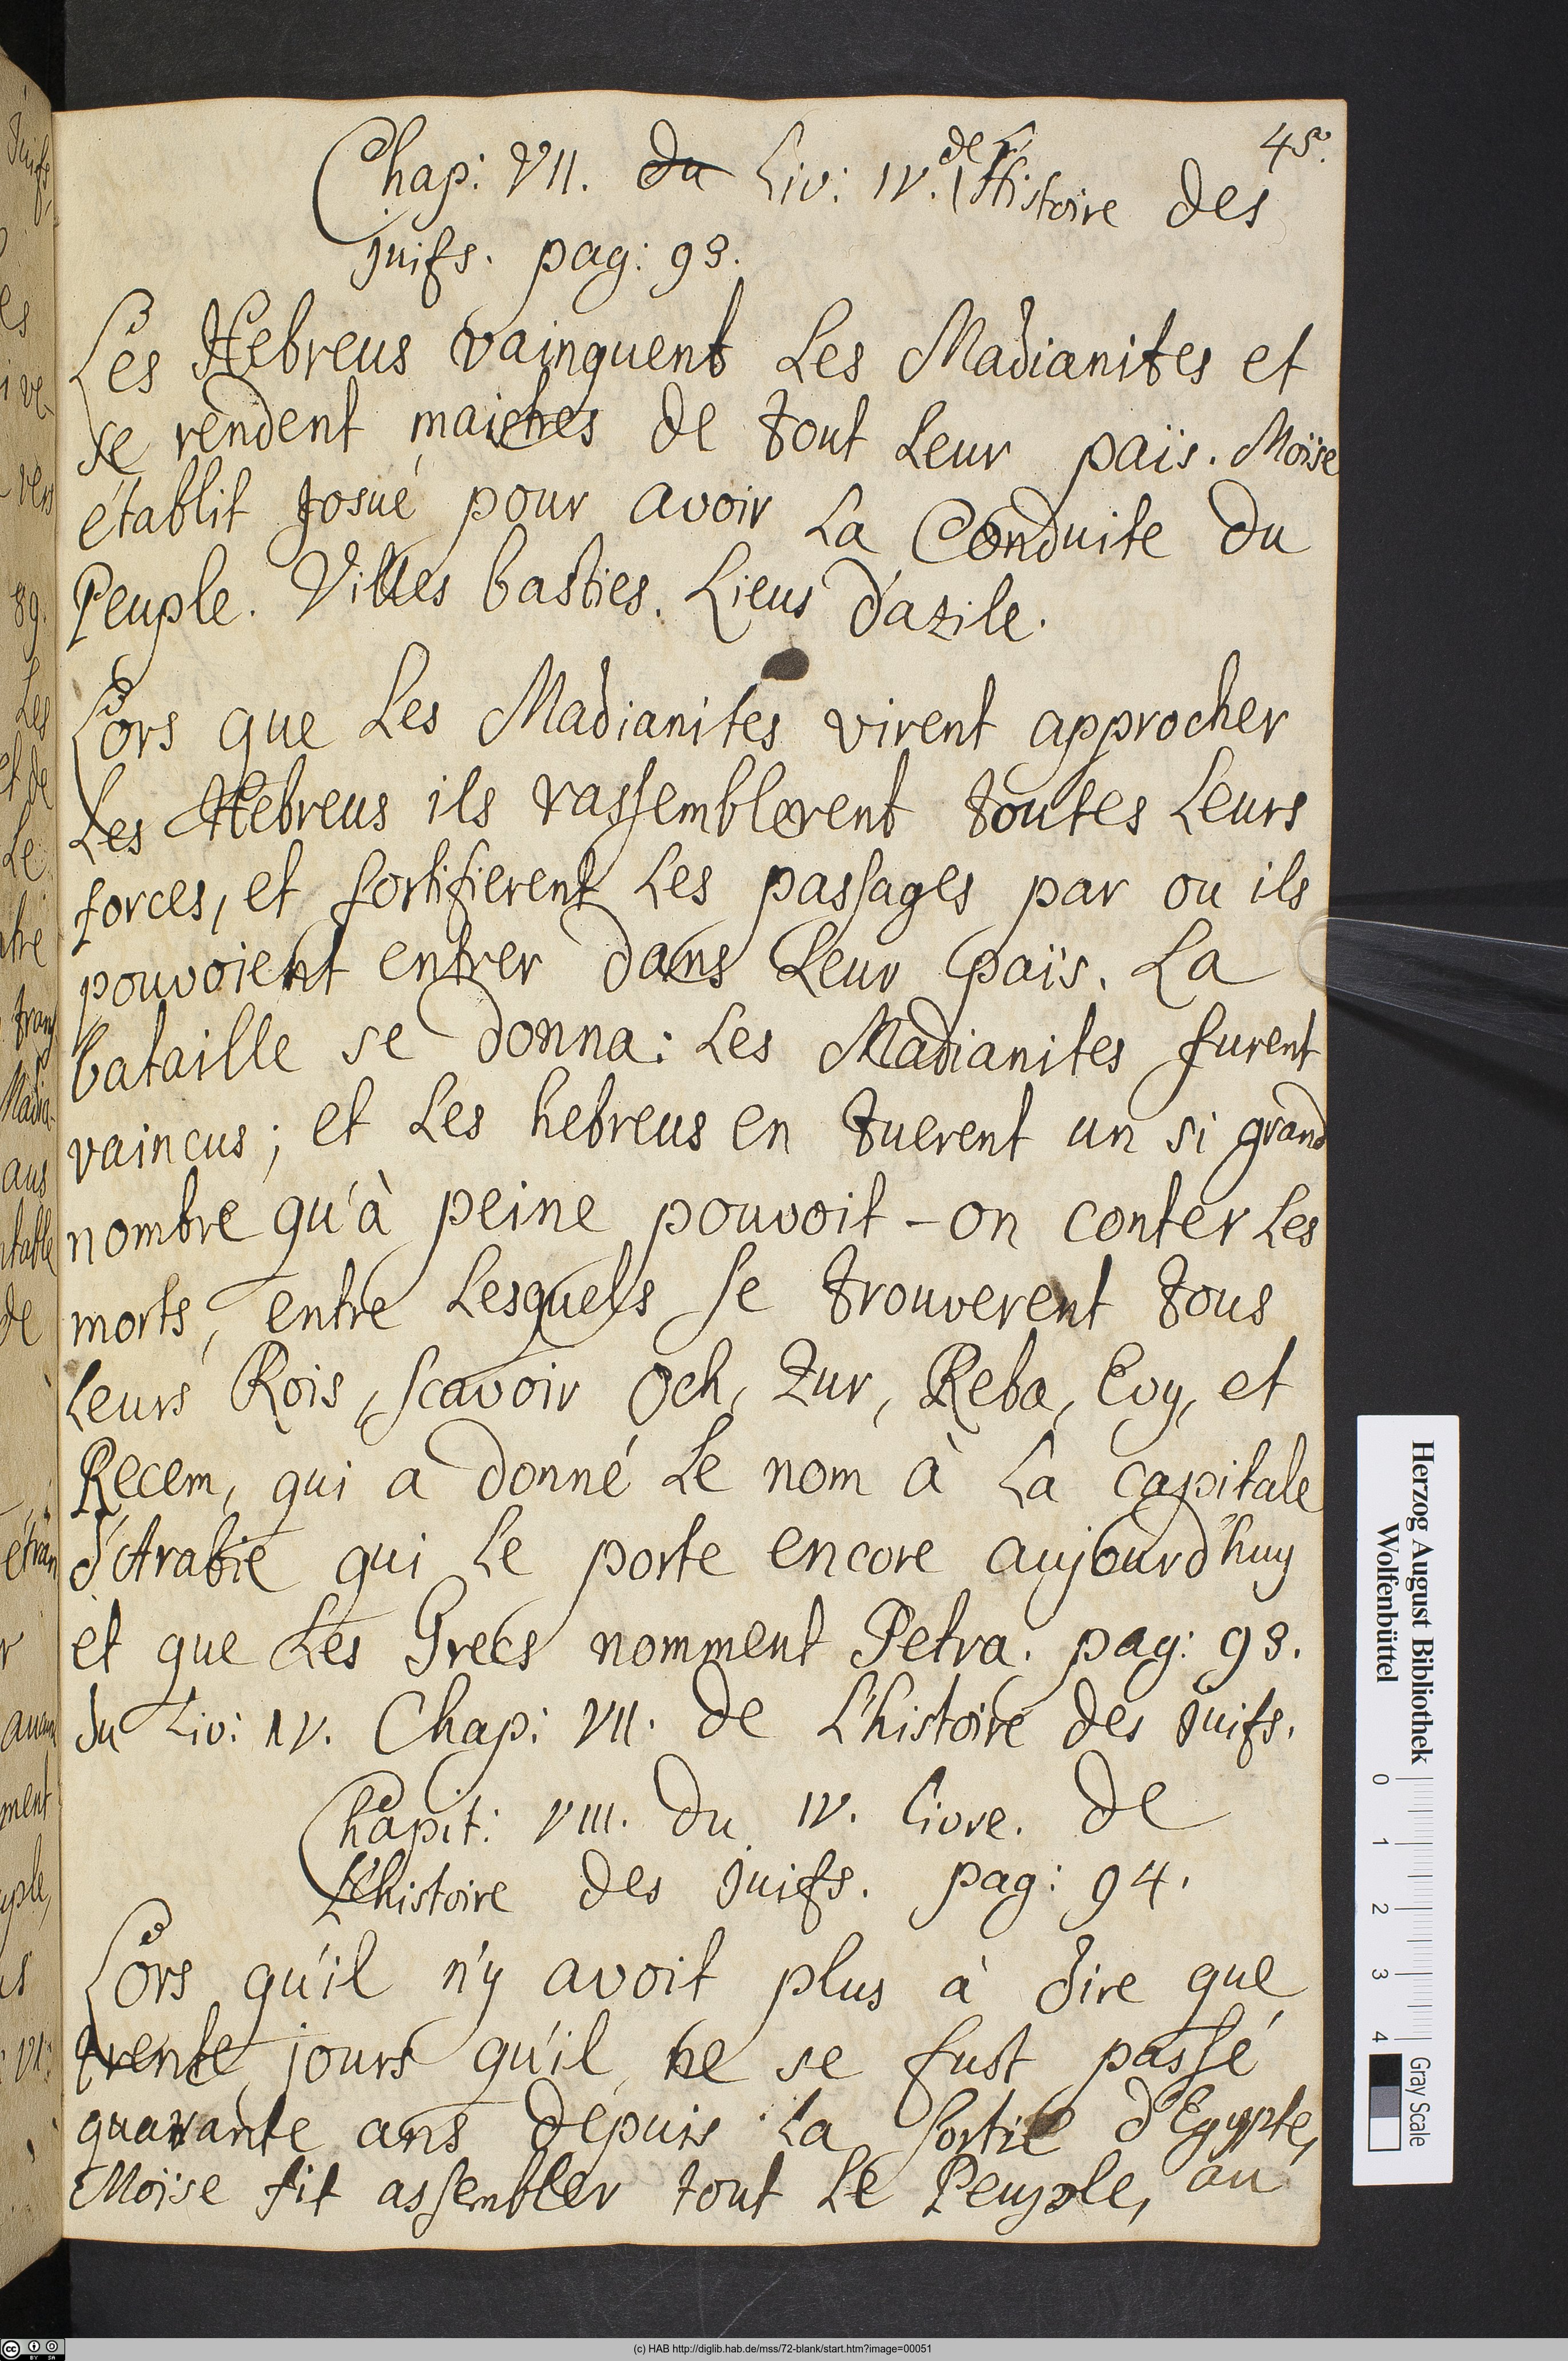 45.
Chap: VII. du Liv: IV. de L'Histoire des
juifs. pag: 93.
Les Hebreus vainquent Les Madianites et
se rendent maistres de tout Leur païs. Moïse
établit Josué pour avoir La Conduite du
Peuple. Villes basties. Lieus d'azile.
Lors que Les Madianites virent approcher
Les Hebreus ils rassemblerent toutes Leurs
forces, et fortifierent Les passages par ou ils
pouvoient entrer dans Leur païs. La
bataille se donna: Les Madianites furent
vaincus; et Les hebreus en tuerent un si grand
nombre qu'à peine pouvoit-on conter Les
morts, entre Lesquels se trouverent tous
Leurs Rois, scavoir Och, Zur, Reba, Evy, et
Recem, qui a donné Le nom à La capitale
d'Arabie qui Le porte encore aujourd'huy
et que Les Grecs nomment Petra. pag: 93.
du Liv: IV. Chap: VII. de L'histoire des juifs.
Chapit: VIII. du IV. Livre. de
L'histoire des juifs. pag: 94.
Lors qu'il n'y avoit plus à dire que
trente jours qu'il ne se fust passé
quarante ans depuis La sortie d'Egypte,
Moïse fit assembler tout Le Peuple, au
Herzog August Bibliothek
Wolfenbüttel
0 1 2 3 4
Gray Scale
(c) HAB http://diglib.hab.de/mss/72-blank/start.htm?image=00051